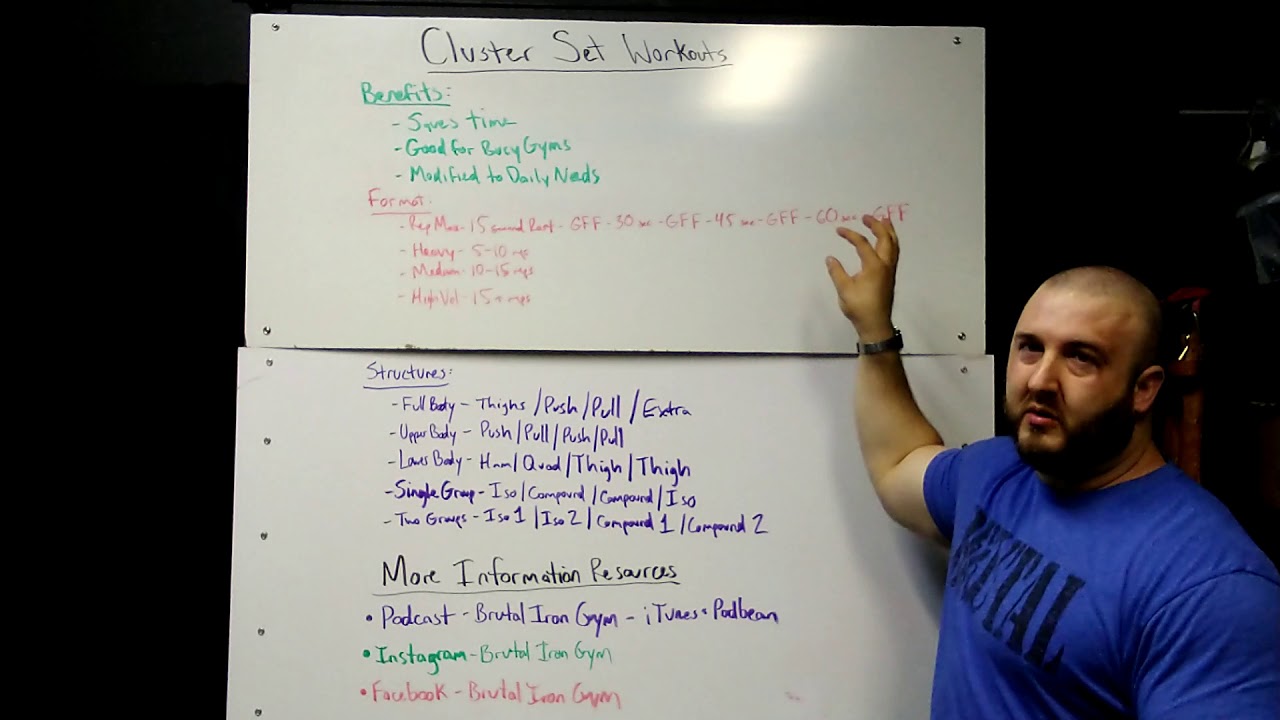 Cluster Set Workouts
Benefits:
- Saves time
- Good for Busy Gyms
- Modified to Daily Needs
Format:
- Rep Max - 15 second Rest - GFF - 30 sec - GFF - 45 sec - GFF - 60 sec - GFF
- Heavy - 5-10 reps
- Medium - 10-15 reps
- High Vol - 15+ reps
Structures:
- Full Body - Thighs / Push / Pull / Extra
- Upper Body - Push / Pull / Push / Pull
- Lower Body - Ham / Quad / Thigh / Thigh
- Single Group - Iso / Compound / Compound / Iso
- Two Groups - Iso 1 / Iso 2 / Compound 1 / Compound 2
More Information Resources
• Podcast - Brutal Iron Gym - iTunes • Podbean
• Instagram - Brutal Iron Gym
• Facebook - Brutal Iron Gym